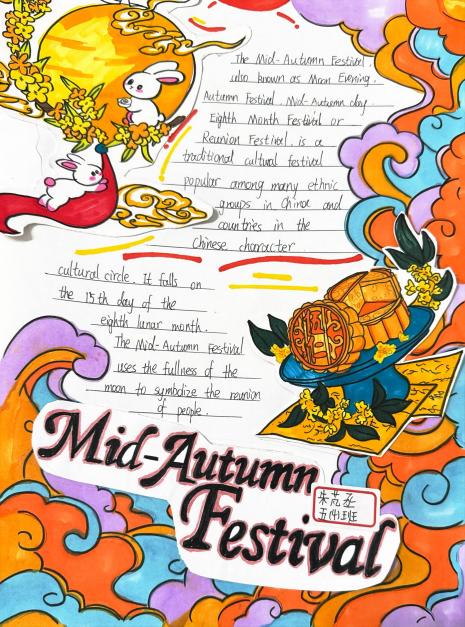 The Mid-Autumn Festival,
also known as Moon Evening,
Autumn Festival, Mid-Autumn day,
Eighth Month Festival or
Reunion Festival, is a
traditional cultural festival
popular among many ethnic
groups in China and
countries in the
Chinese character
cultural circle. It falls on
the 15th day of the
eighth lunar month.
The Mid-Autumn Festival
uses the fullness of the
moon to symbolize the reunion
of people.
Mid-Autumn
Festival